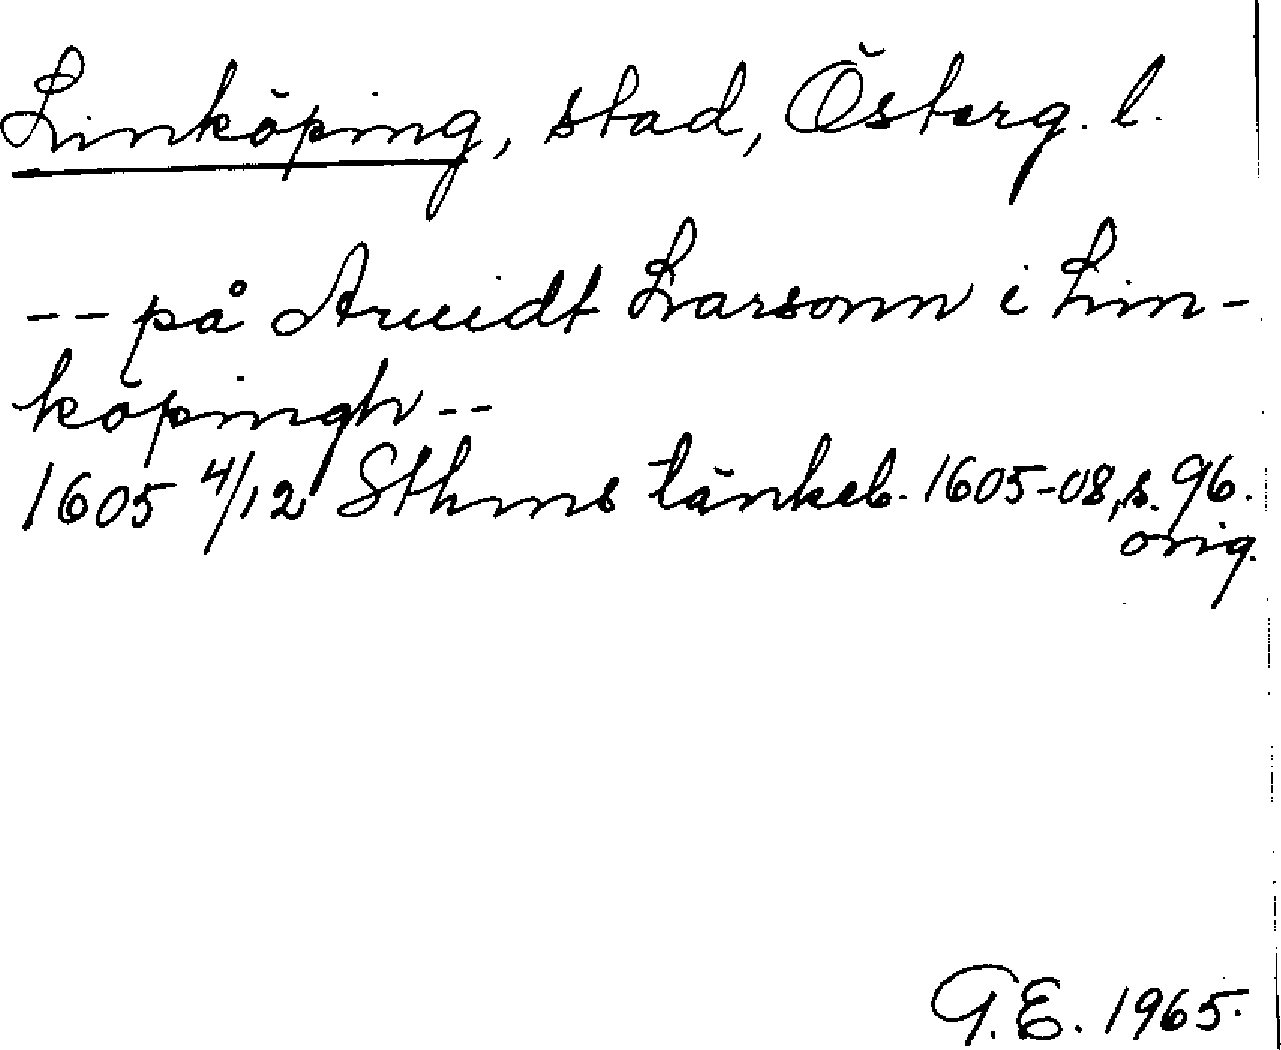 Linköping, stad, Österg. l.
-- på Aruidt Larsonn i Lin-
köpingh --
1605 4/12 Sthms tänkeb. 1605-08, s. 96.
orig.
G.E. 1965.